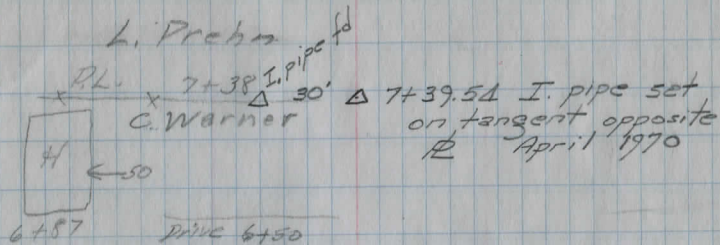 L. Prehn
P.L. 7+38 I. pipe fd
30' 7+39.51 I. pipe set
C. Warner on tangent opposite
PL April 1970
H
50
6+87 Drive 6+50